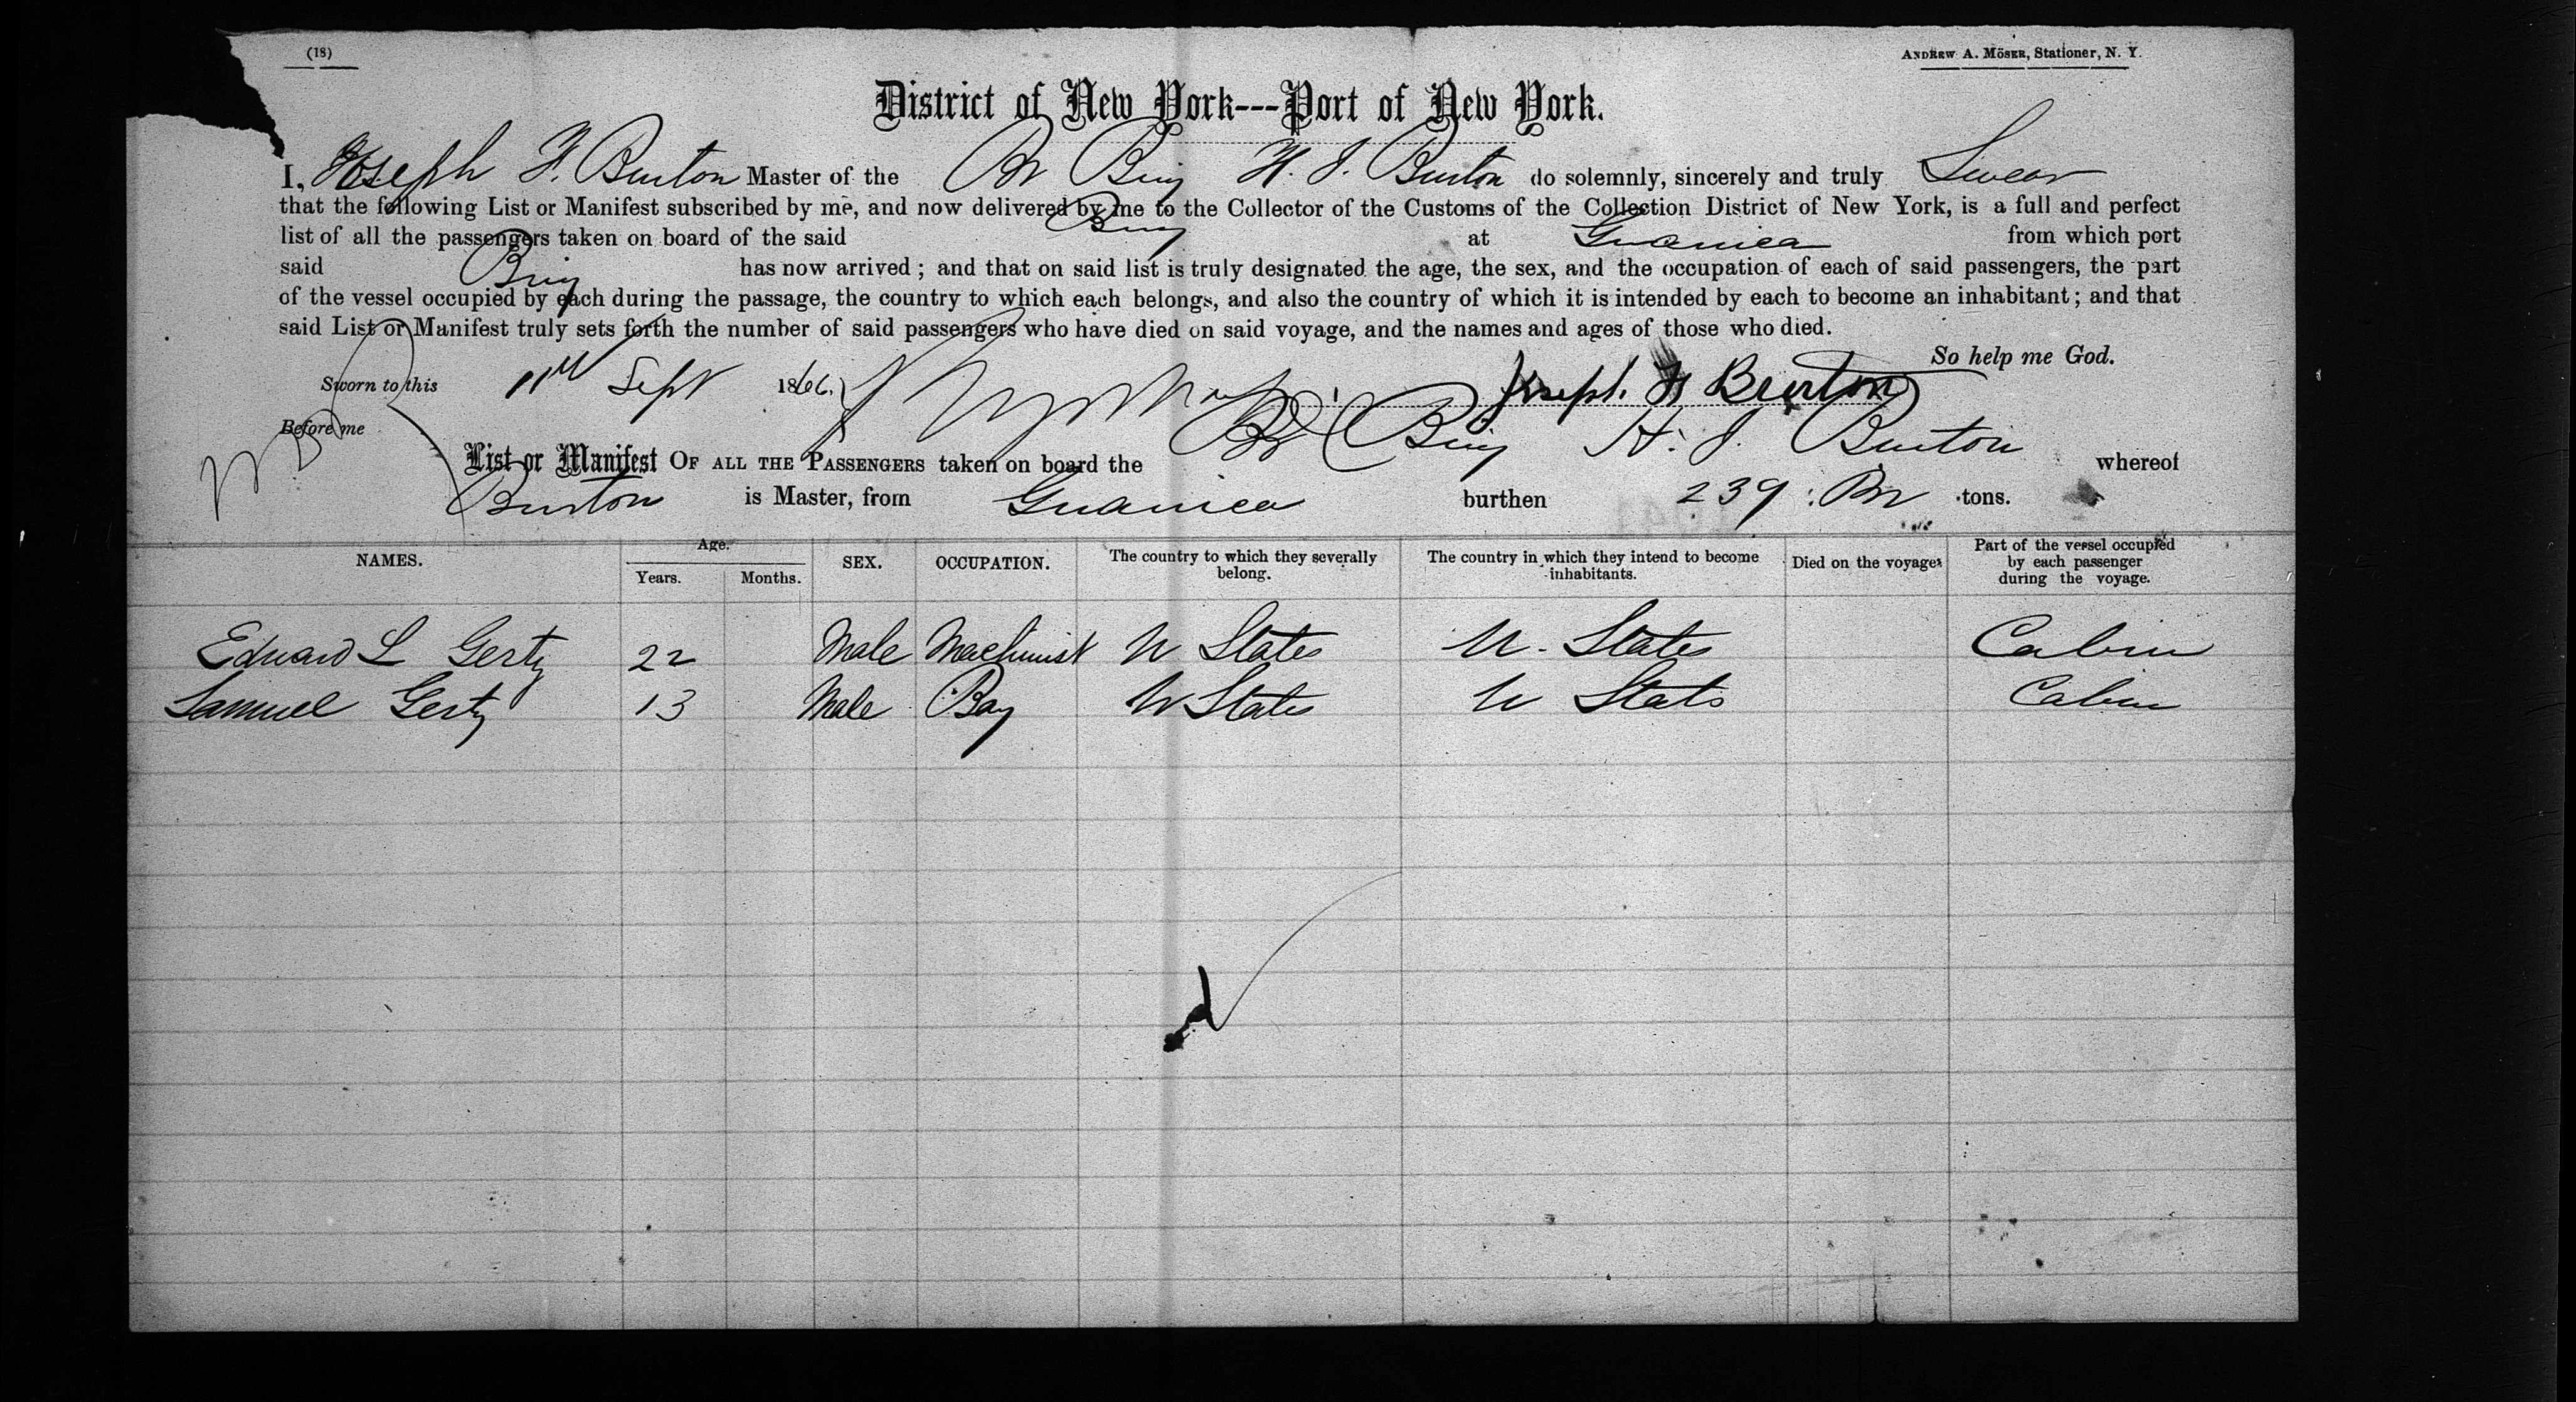 (18)
ANDREW A. MÖSER, Stationer, N. Y.
District of New York---Port of New York.
I, Joseph F. Burton Master of the Br Brig H. J. Burton do solemnly, sincerely and truly Swear
that the following List or Manifest subscribed by me, and now delivered by me to the Collector of the Customs of the Collection District of New York, is a full and perfect
list of all the passengers taken on board of the said Brig at Guanica from which port
said Brig has now arrived; and that on said list is truly designated the age, the sex, and the occupation of each of said passengers, the part
of the vessel occupied by each during the passage, the country to which each belongs, and also the country of which it is intended by each to become an inhabitant; and that
said List or Manifest truly sets forth the number of said passengers who have died on said voyage, and the names and ages of those who died.
So help me God.
Sworn to this 11th Sept 1866. Joseph F Burton
Before me
List or Manifest OF ALL THE PASSENGERS taken on board the Br Brig H. J. Burton whereof
Burton is Master, from Guanica burthen 239 Br tons.
NAMES. Age. Years. Months. SEX. OCCUPATION. The country to which they severally belong. The country in which they intend to become inhabitants. Died on the voyage. Part of the vessel occupied by each passenger during the voyage.
Edward L Gerty 22 Male Machinist U States U. States Cabin
Samuel Gerty 13 Male Boy U States U Stats Cabin